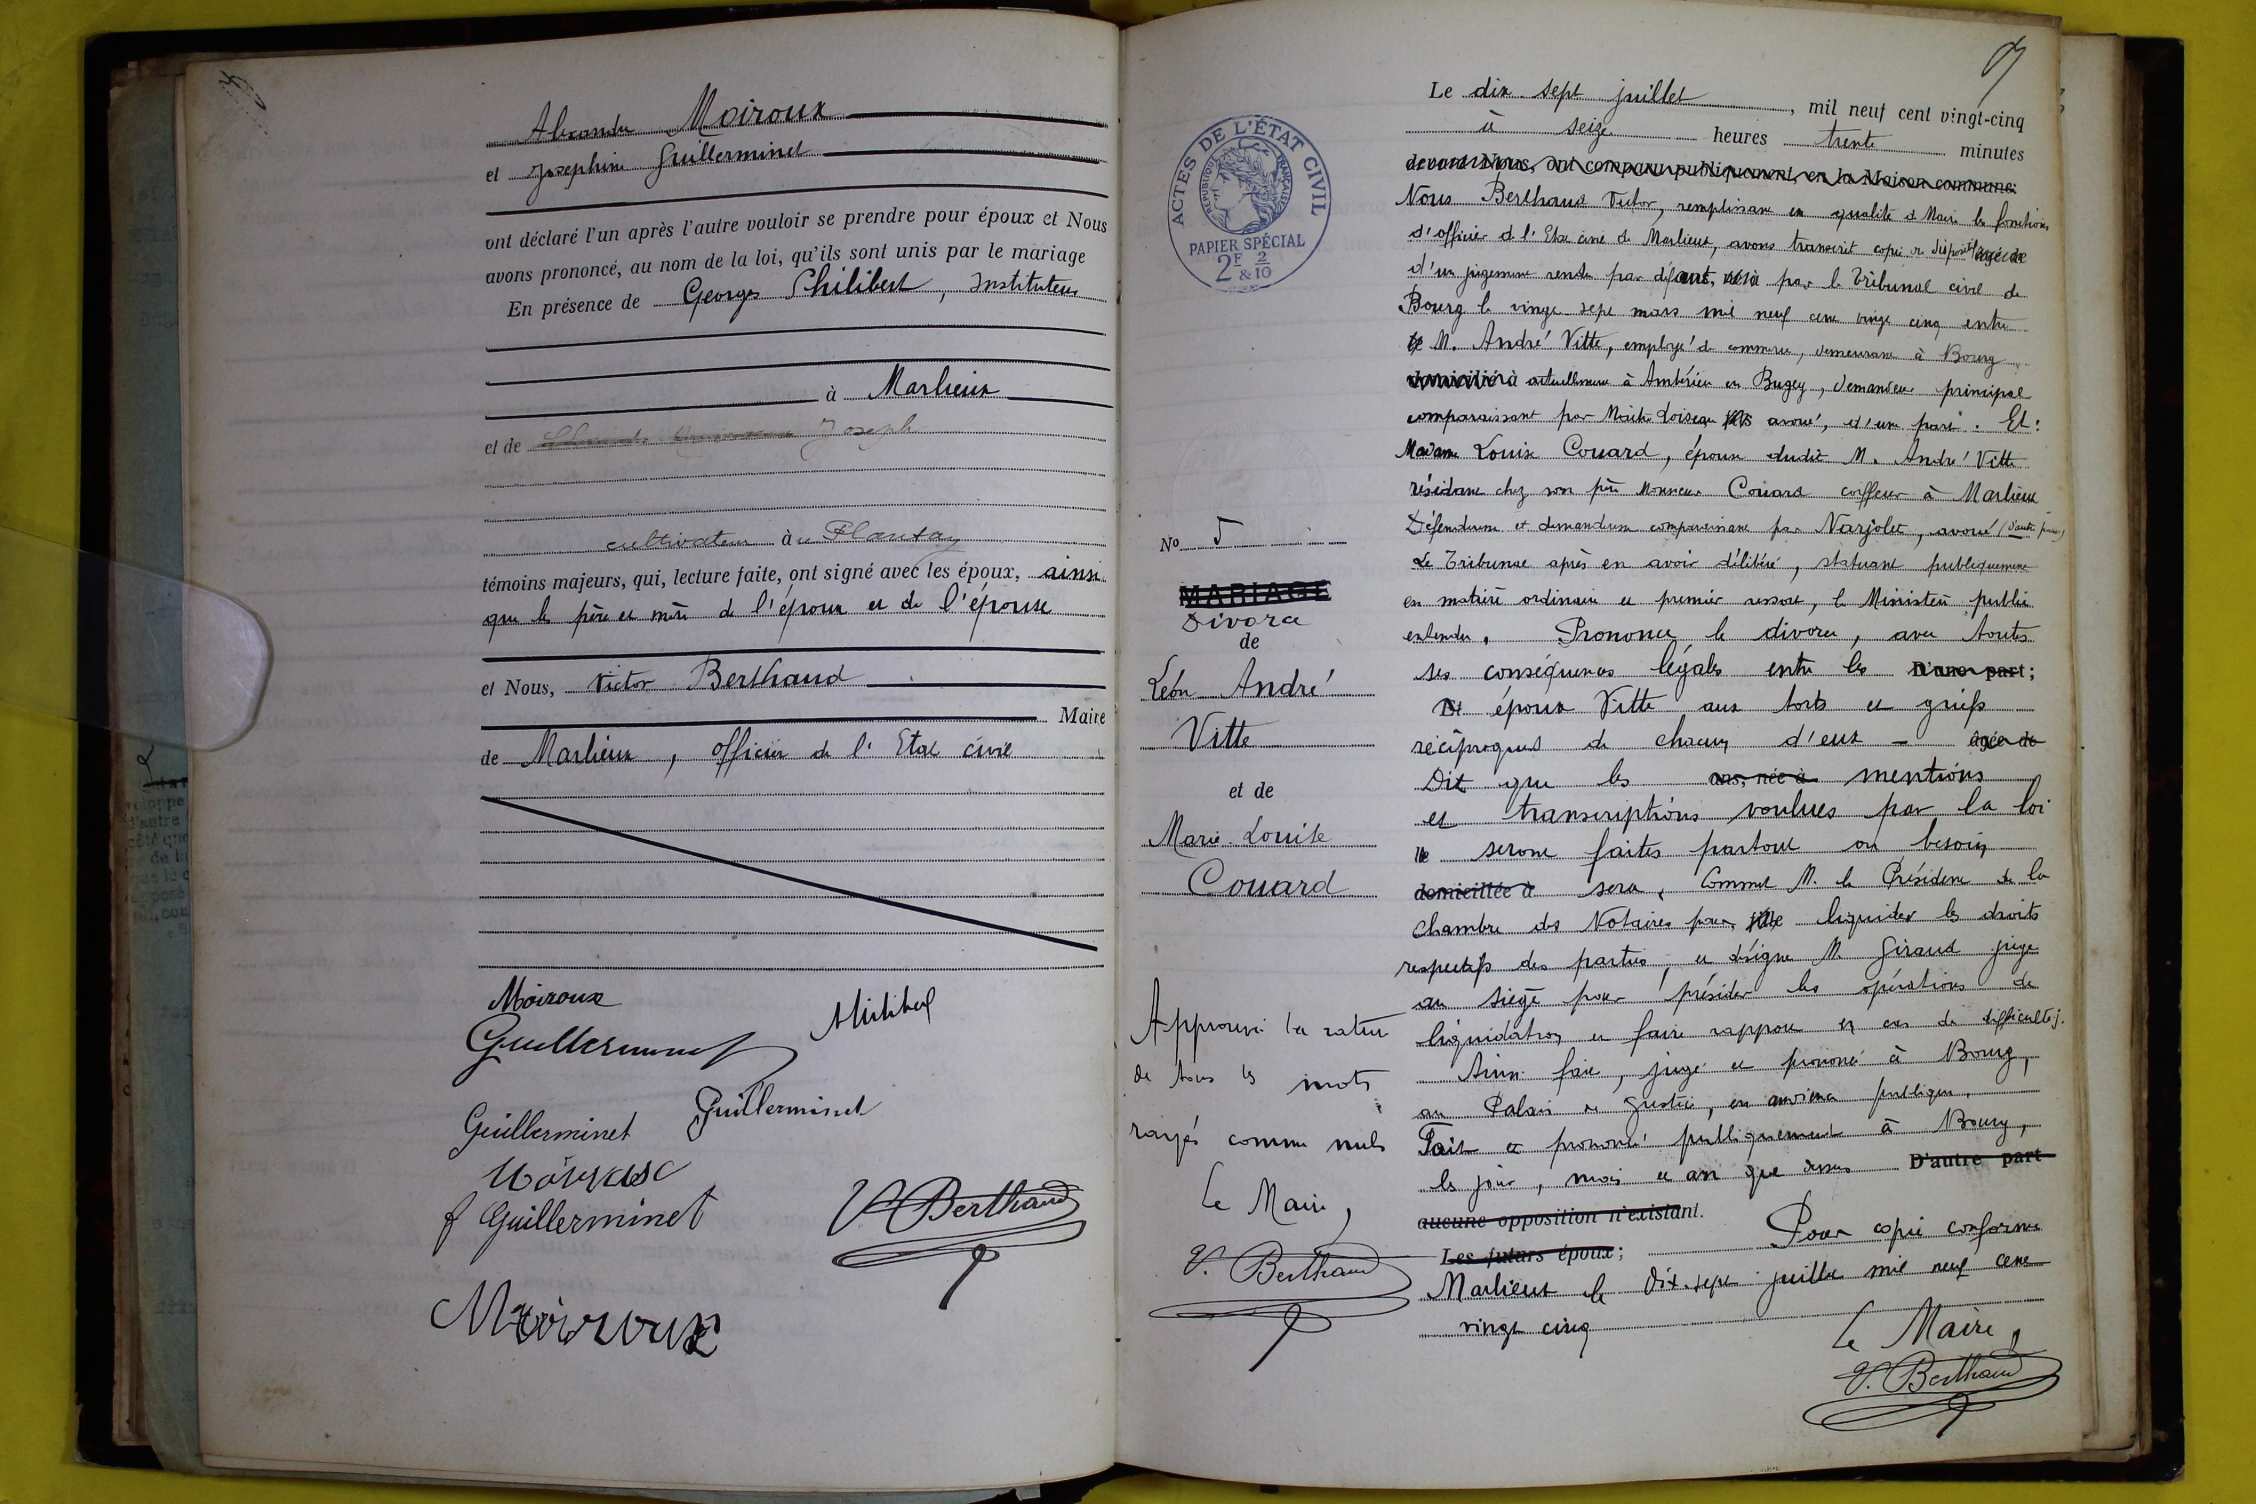 Alexandre Moiroux
et Joséphine Guillerminet
ont déclaré l'un après l'autre vouloir se prendre pour époux et Nous
avons prononcé, au nom de la loi, qu'ils sont unis par le mariage
En présence de Georges Philibert, Instituteur
à Marlieux
et de Joseph
cultivateur à u Plantay
témoins majeurs, qui, lecture faite, ont signé avec les époux, ainsi
que les père et mère de l'époux et de l'épouse
et Nous, Victor Berthaud
Maire
de Marlieux, officier de l'Etat civil
Moiroux
Philibert
Guillerminet
Guillerminet
Guillerminet
f Guillerminet
V Berthaud
Moiroux
ACTES DE L'ÉTAT CIVIL
RÉPUBLIQUE FRANÇAISE
PAPIER SPÉCIAL
2F & 2/10
No 5
MARIAGE
Divorce
de
Léon André
Vitte
et de
Marie Louise
Couard
Approuvé la rature
de tous les mots
rayés comme nuls
Le Maire,
V. Berthaud
Le dix sept juillet, mil neuf cent vingt-cinq
à seize heures trente minutes
devant Nous, ont comparu publiquement, en la Maison commune:
Nous Berthaud Victor, remplissant en qualité de Maire les fonctions
d'officier de l'Etat civil de Marlieux, avons transcrit copie du dispositif âgé de
d'un jugement rendu par défaut, par le Tribunal civil de
Bourg le vingt sept mars mil neuf cent vingt cinq entre
M. André Vitte, employé de commerce, demeurant à Bourg
domicilié à actuellement à Ambérieu en Bugey, demandeur principal
comparaissant par Maître Loiseau avoué, d'une part. Et:
Madame Louise Couard, épouse dudit M. André Vitte
résidant chez son père Monsieur Couard coiffeur à Marlieux
Défenderesse et demanderesse comparaissant par Narjolet, avoué (d'autre part)
Le Tribunal après en avoir délibéré, statuant publiquement
en matière ordinaire et premier ressort, le Ministère public
entendu. Prononce le divorce, avec toutes
ses conséquences légales entre les D'une part;
Et époux Vitte aux torts et griefs
réciproques de chacun d'eux - âgée de
Dit que les ans, née à mentions
et transcriptions voulues par la loi
seront faites partout où besoin
domiciliée à sera. Commet M. le Président de la
chambre des Notaires pour liquider les droits
respectifs des parties, et désigne M. Giraud juge
au siège pour présider les opérations de
liquidation et faire rapport en cas de difficultés.
Ainsi fait, jugé et prononcé à Bourg,
au Palais de Justice, en audience publique.
Fait et prononcé publiquement à Bourg,
les jour, mois et an que dessus D'autre part
aucune opposition n'existant.
Les futurs époux; Pour copie conforme
Marlieux le dix-sept juillet mil neuf cent
vingt cinq
Le Maire,
V. Berthaud